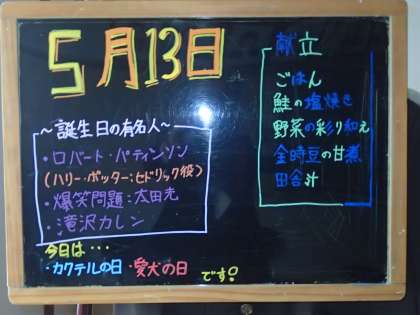 5月13日
~誕生日の有名人~
・ロバート・パティンソン
(ハリー・ポッター:セドリック役)
・爆笑問題:太田光
・滝沢カレン
今日は・・・
・カクテルの日 ・愛犬の日 です!
献立
ごはん
鮭の塩焼き
野菜の彩り和え
金時豆の甘煮
田舎汁